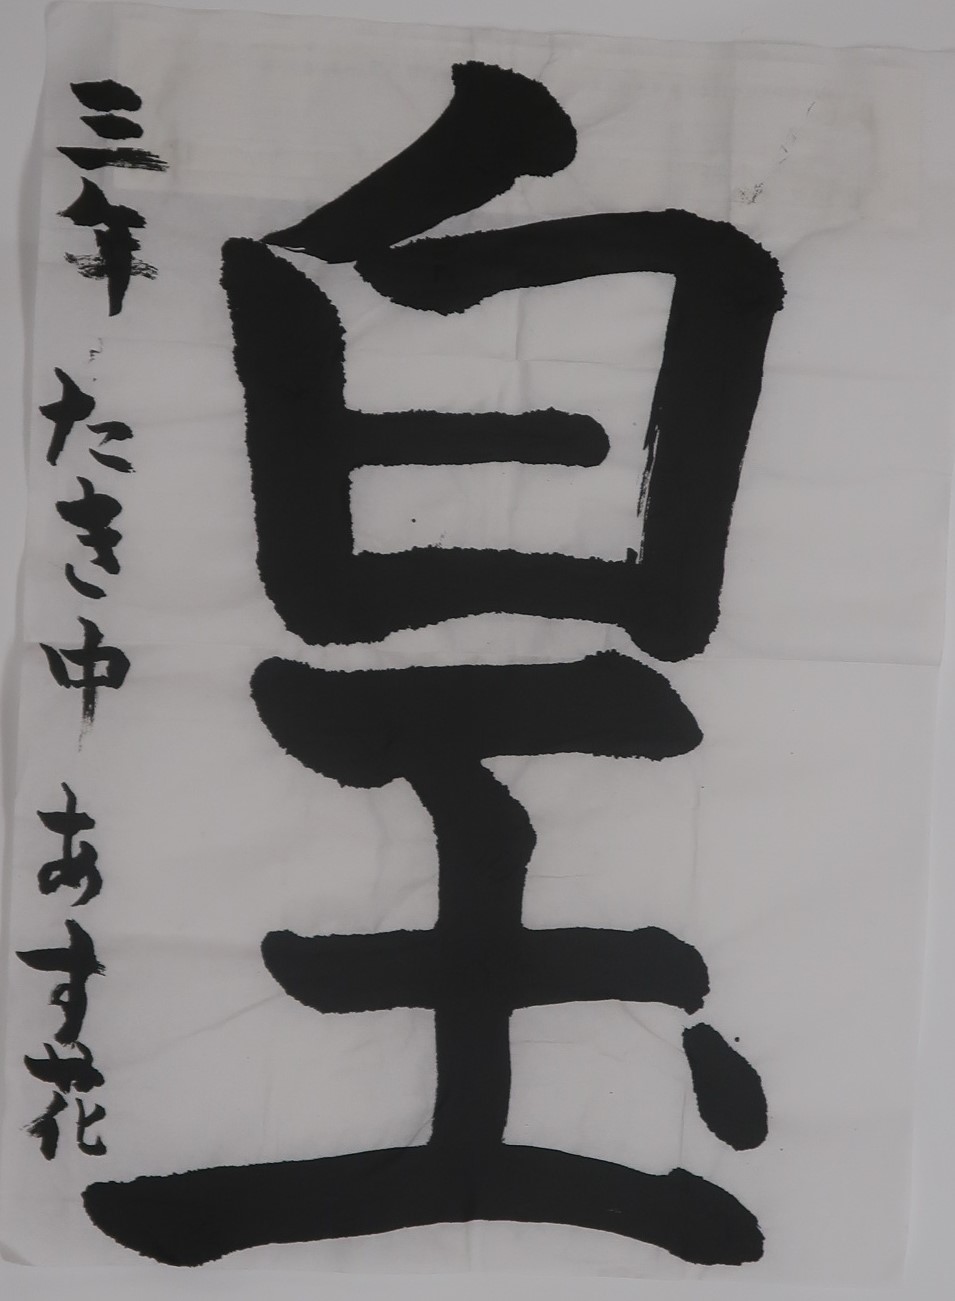 白玉
三年 たき中 あす花